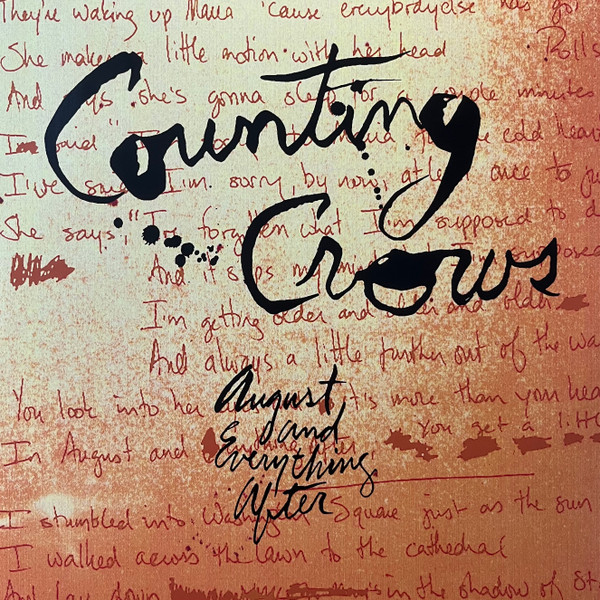 They're waking up Maria 'cause everybody else has go
She makes a little motion with her head
Rolls
And says she's gonna sleep for a couple minutes
I said I'm sorry to Maria for the cold hear
I've said I'm sorry, by now, at least once to ju
She says, "I've forgotten what I'm supposed to d
And it slips my mind what I'm supposed
I'm getting older and older and older
And always a little further out of the wa
You look into her it's more than your hea
In August and Everything After You get a litt
I stumbled into Washington Square just as the sun
I walked across the lawn to the cathedral
And lay down in the shadow of St.
Counting
Crows
August
and
Everything
After